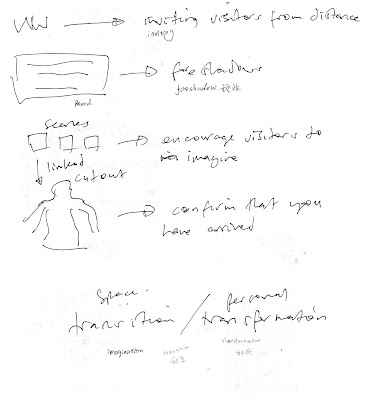 inviting visitors from distance
inviting
foreshadows
foreshadow
Panel
scenes
encourage visitors to
imagine
linked
cutout
confirm that you
have arrived
space
personal
transition / transformation
imagination
transition
transformation